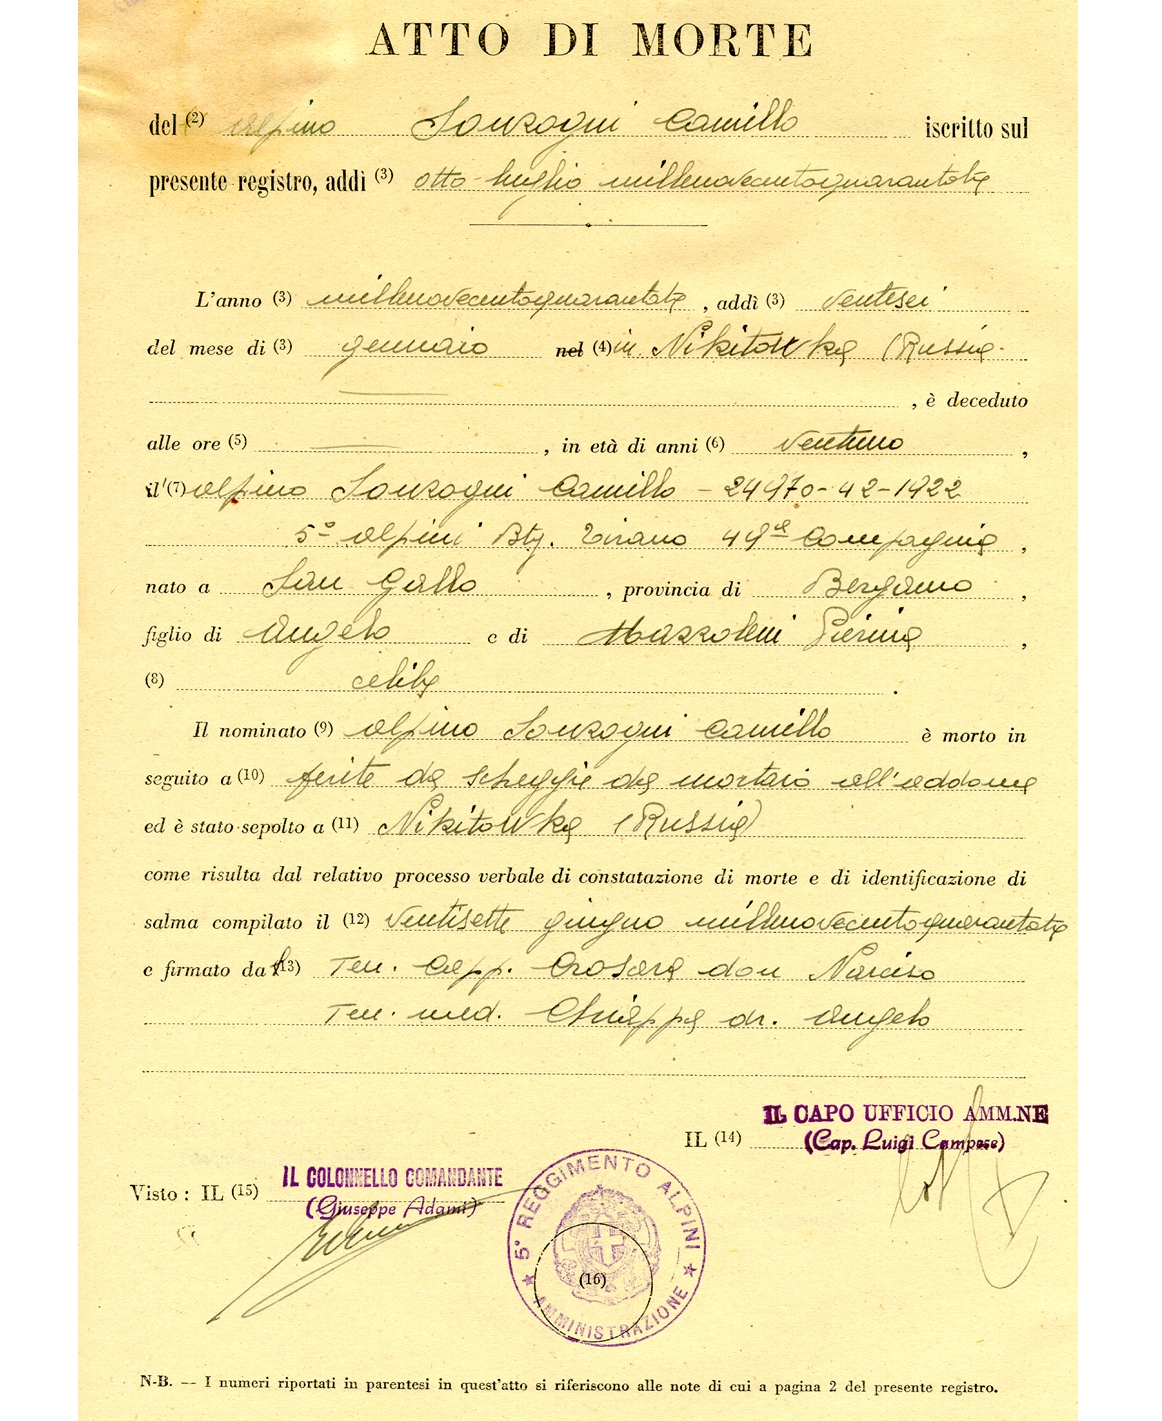 ATTO DI MORTE
del (2) alpino Sonzogni Camillo iscritto sul
presente registro, addì (3) otto luglio millenovecentoquarantatre
L'anno (3) millenovecentoquarantatre, addì (3) ventisei
del mese di (3) gennaio nel (4) in Nikitowka (Russia
, è deceduto
alle ore (5) , in età di anni (6) ventuno ,
il (7) alpino Sonzogni Camillo - 24970-42-1922
5° alpini Btg. Tirano 49ª Compagnia ,
nato a San Gallo , provincia di Bergamo ,
figlio di Angelo e di Mazzoleni Pierina ,
(8) celibe .
Il nominato (9) alpino Sonzogni Camillo è morto in
seguito a (10) ferite da scheggie da mortaio all'addome
ed è stato sepolto a (11) Nikitowka (Russia)
come risulta dal relativo processo verbale di constatazione di morte e di identificazione di
salma compilato il (12) ventisette giugno millenovecentoquarantatre
e firmato da (13) Ten. Capp. Crosara don Narciso
Ten. med. Chiappa dr. Angelo
IL CAPO UFFICIO AMM.NE
IL (14) (Cap. Luigi Campese)
IL COLONNELLO COMANDANTE
Visto : IL (15) (Giuseppe Adami)
5° REGGIMENTO ALPINI
(16)
★ AMMINISTRAZIONE ★
N-B. — I numeri riportati in parentesi in quest'atto si riferiscono alle note di cui a pagina 2 del presente registro.